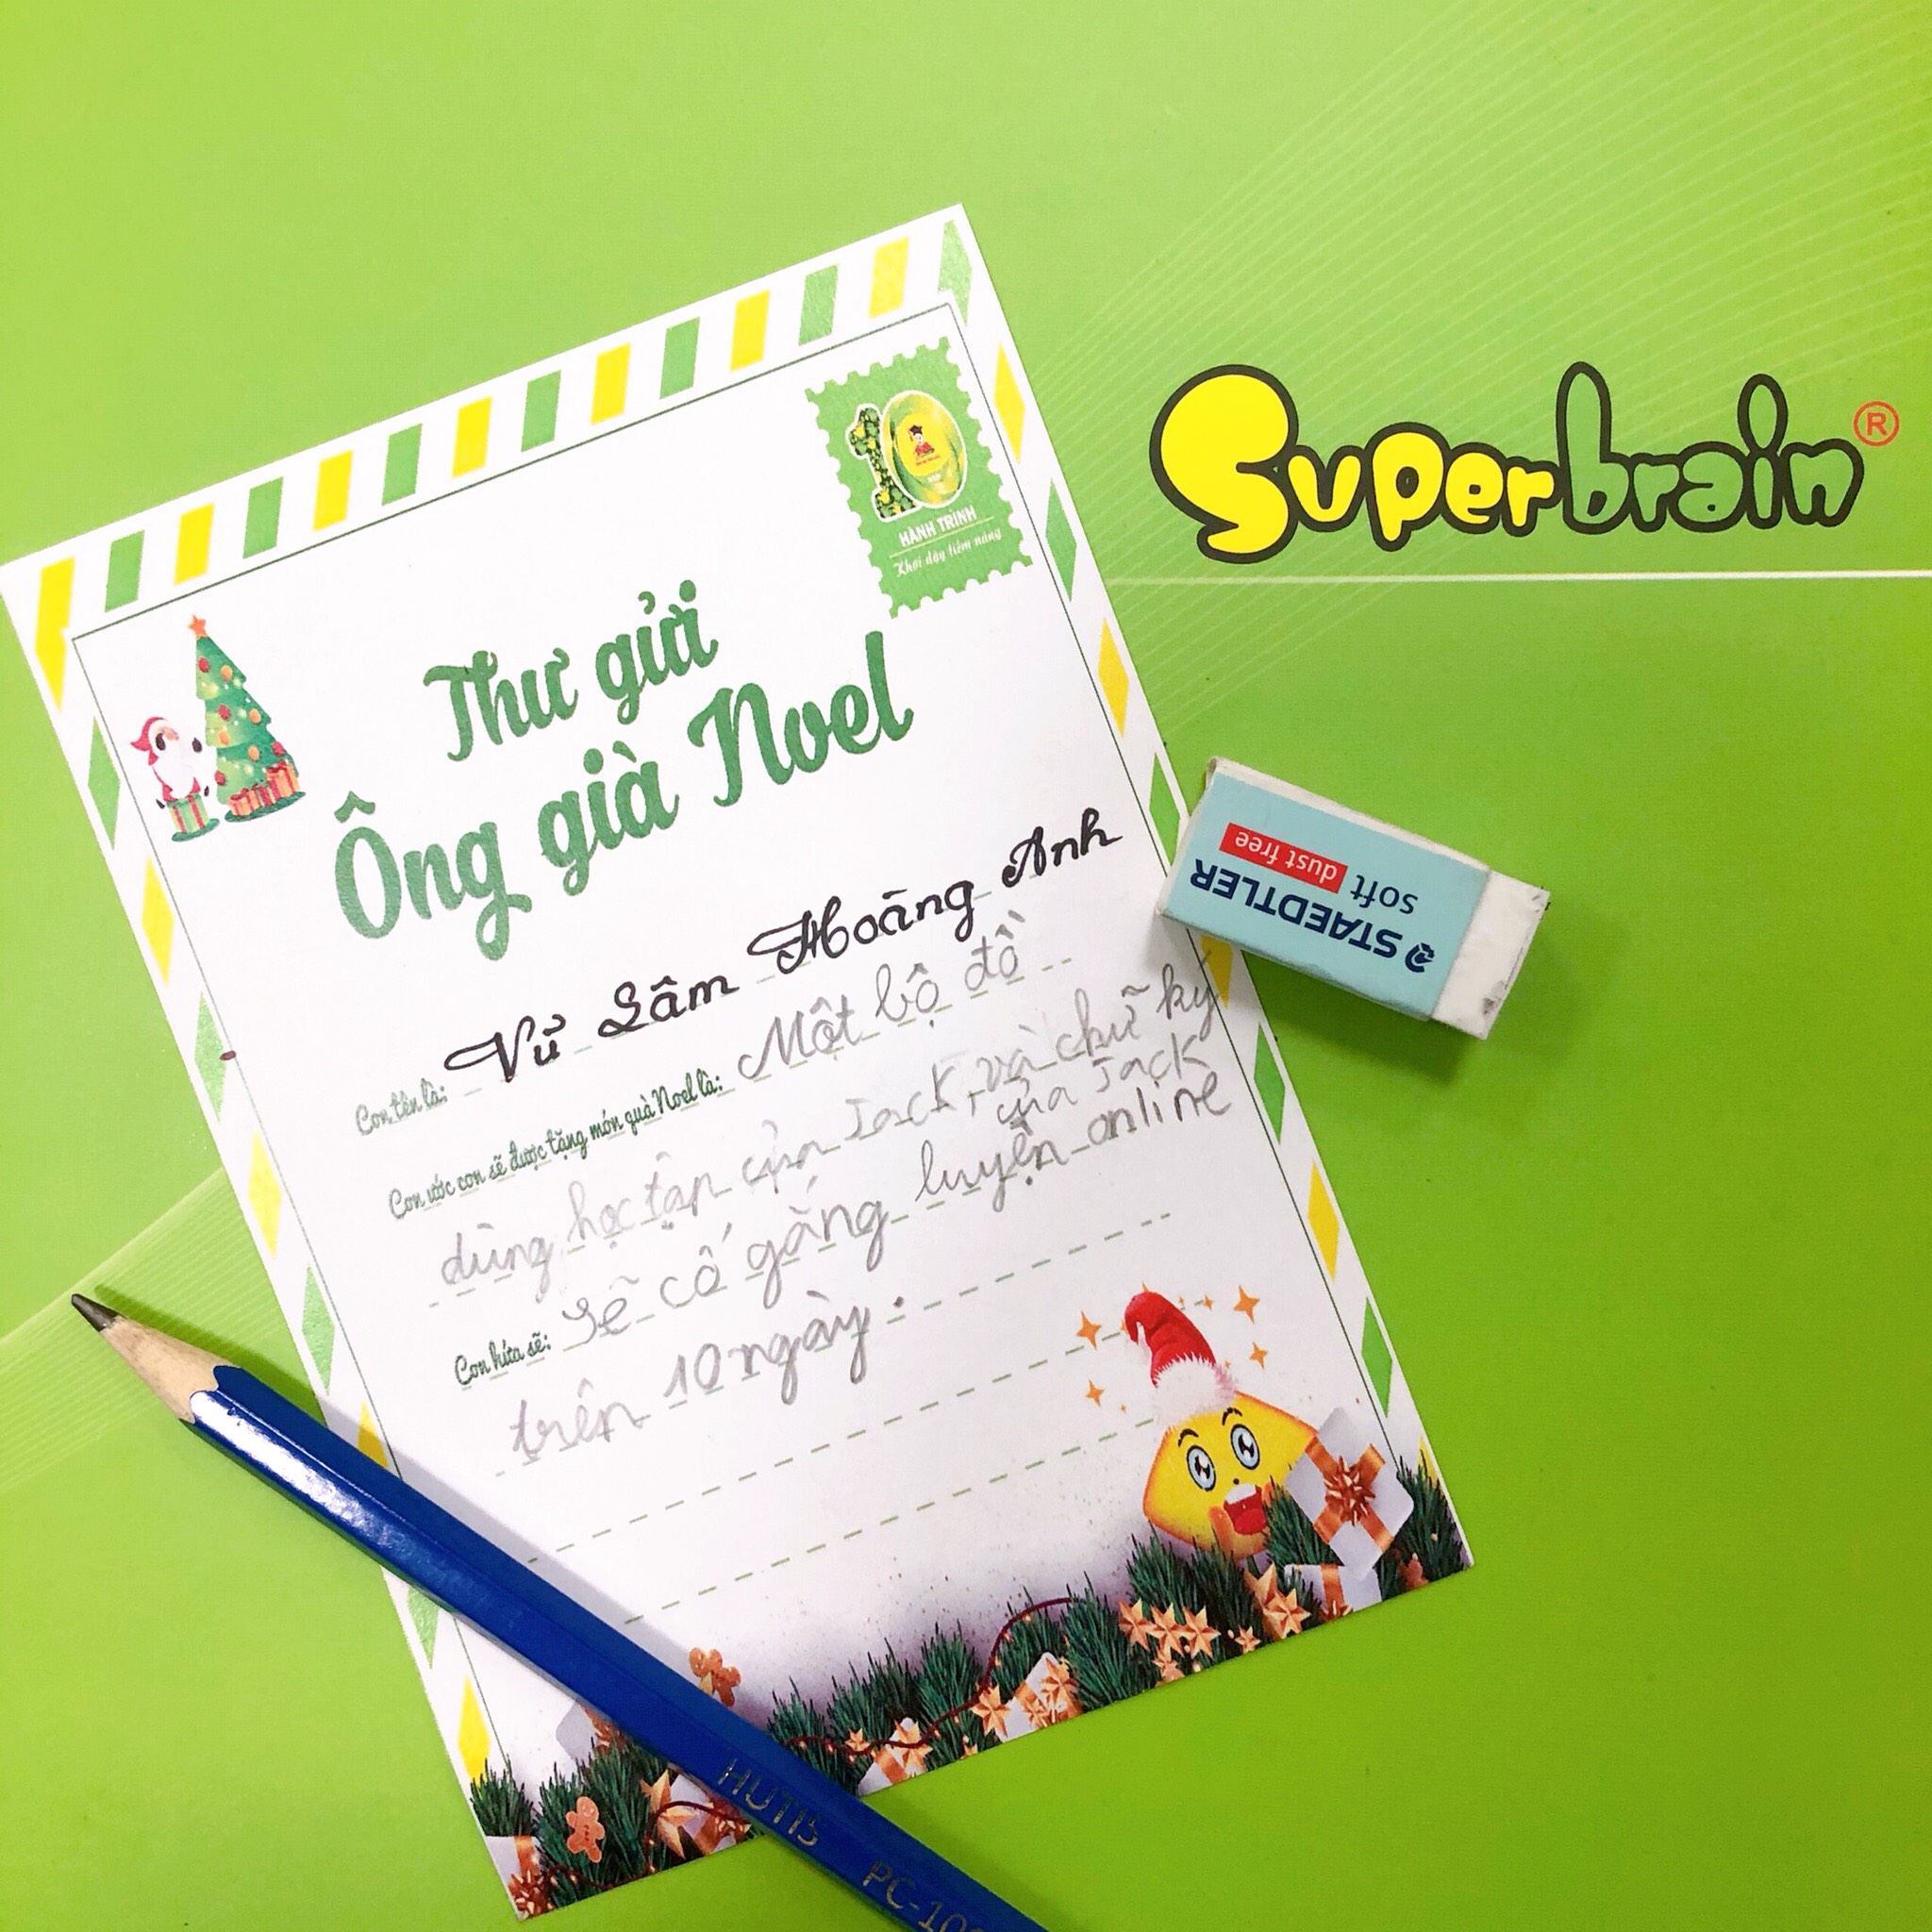 10
HÀNH TRÌNH
Khơi dậy tiềm năng
Superbrain®
Thư gửi
Ông già Noel
Con tên là: Vũ Lâm Hoàng Anh
Con ước con sẽ được tặng món quà Noel là: Một bộ đồ
dùng học tập của Jack, và chữ ký
của Jack
Con hứa sẽ: Sẽ cố gắng luyện online
trên 10 ngày.
STAEDTLER
soft dust free
HUTIS PC-10